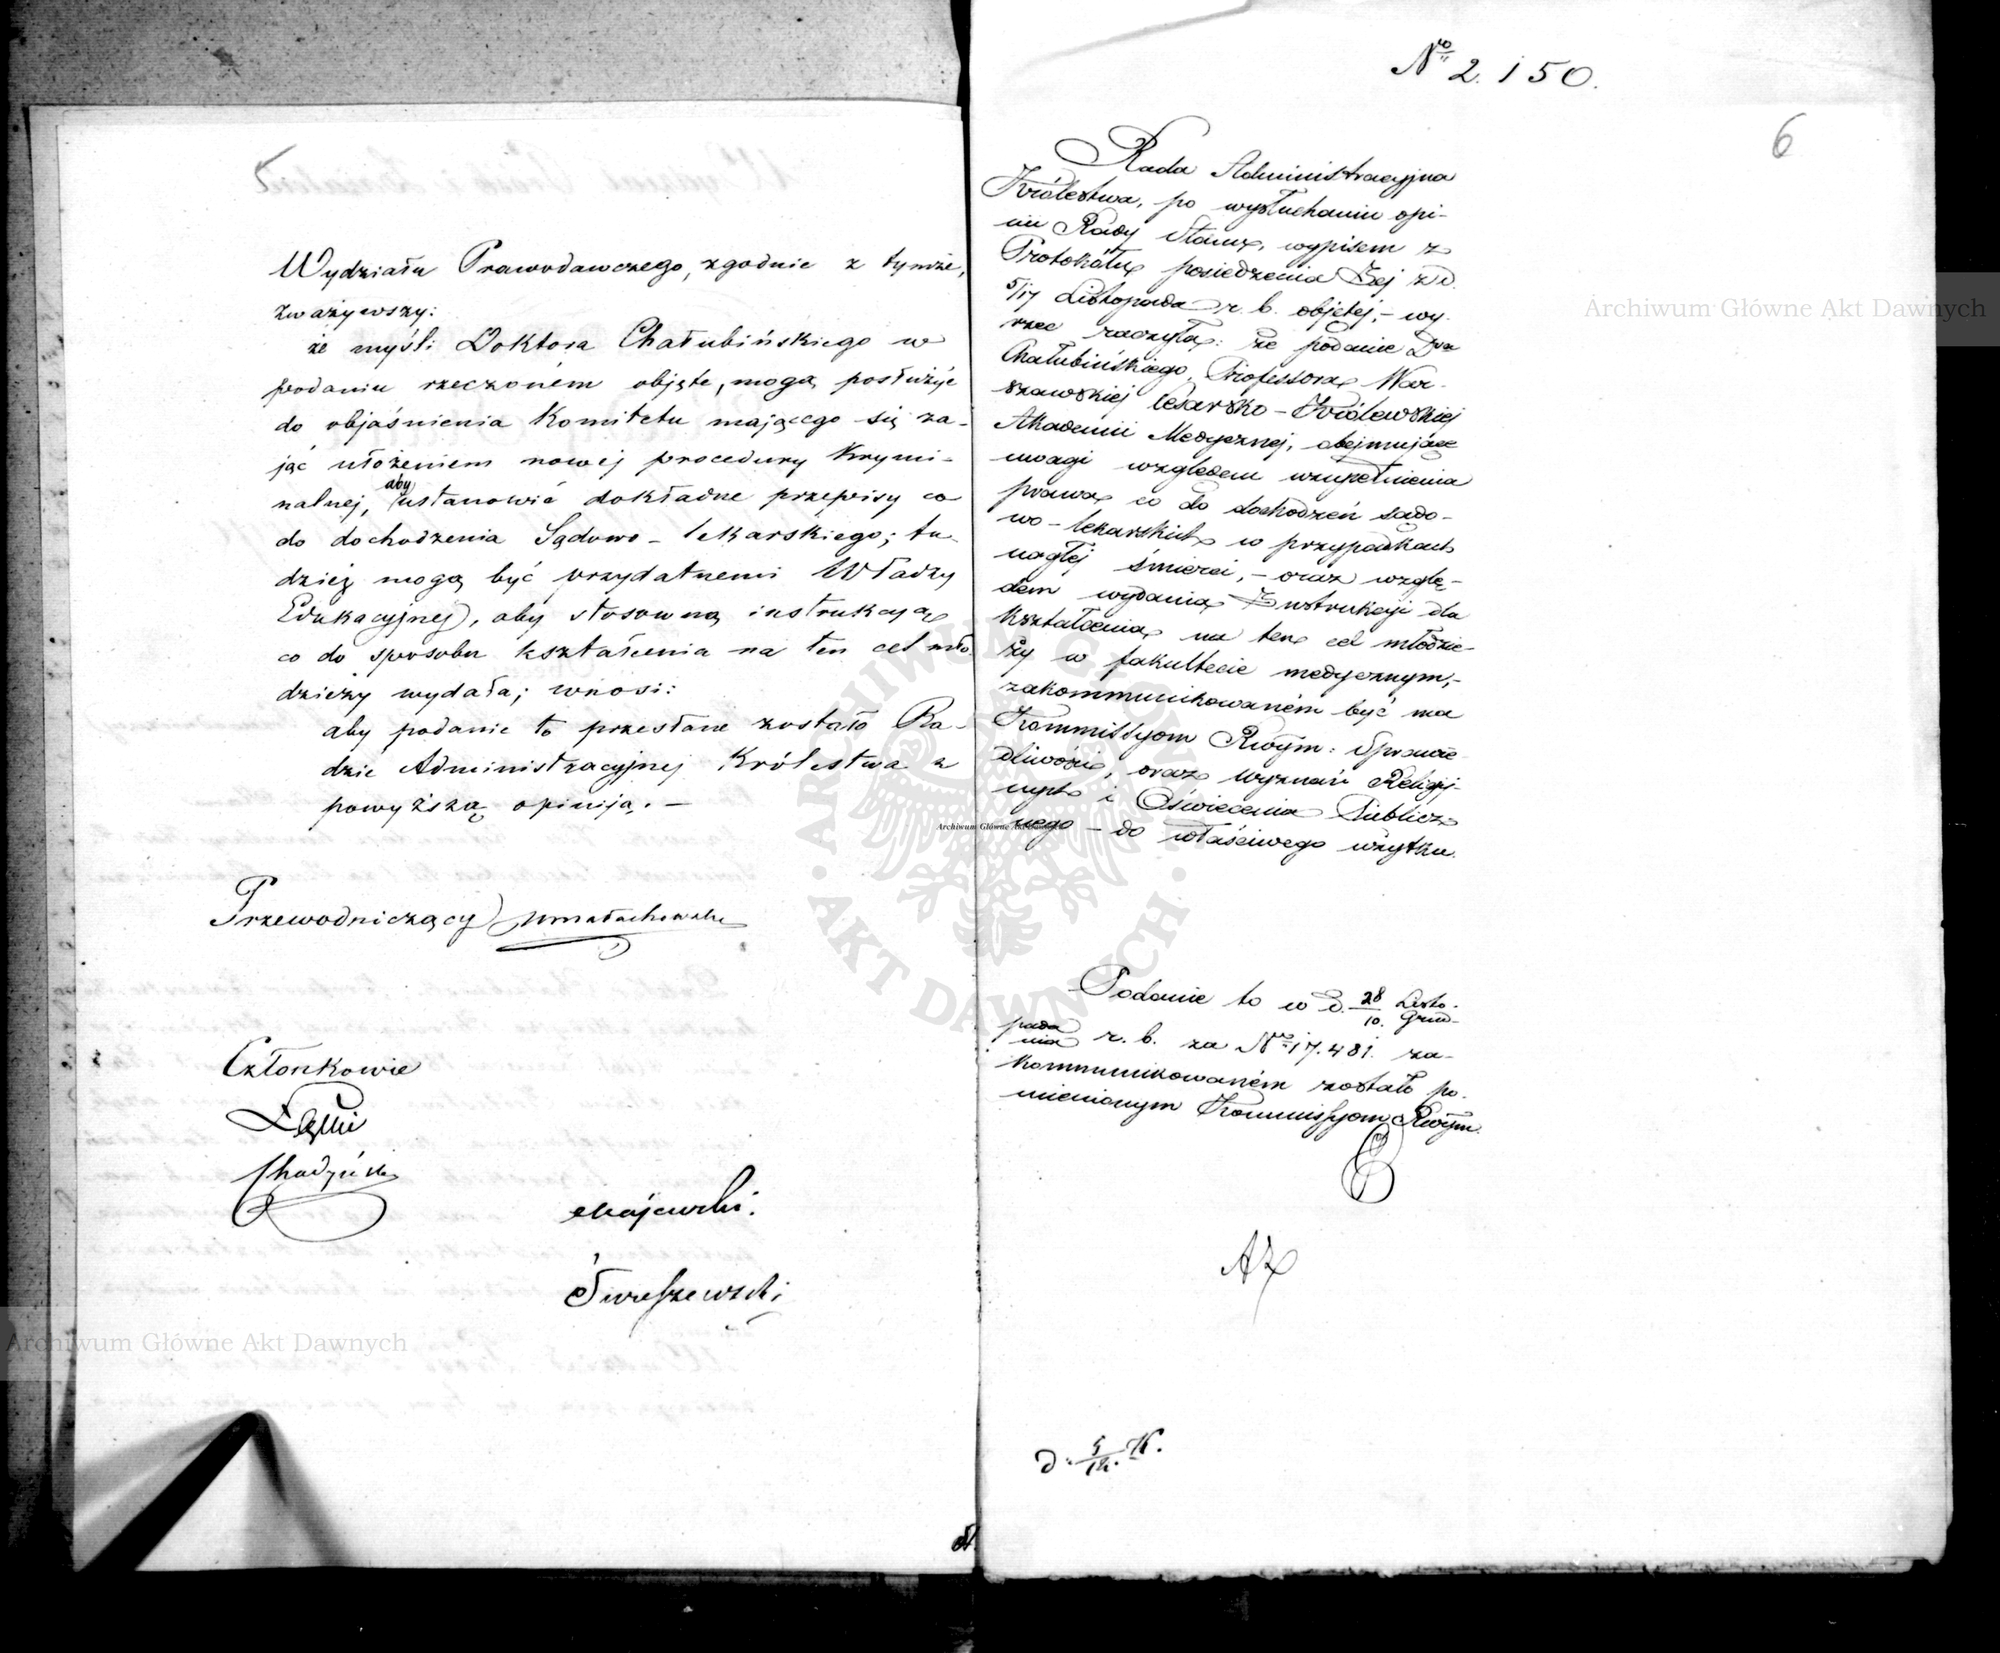 Wydziału Prawodawczego, zgodnie z tymże,
zważywszy:
że myśli Doktora Chałubińskiego w
podaniu rzeczoném objęte, mogą posłużyć
do objaśnienia Komitetu mającego się za-
jąć ułożeniem nowej procedury Krymi-
nalnej, aby ustanowić dokładne przepisy co
do dochodzenia Sądowo-lekarskiego; tu-
dzież mogą być przydatnemi Władzy
Edukacyjnej, aby stosowną instrukcyą
co do sposobu kształcenia na ten cel mło-
dzieży wydała; wnosi:
aby podanie to przesłane zostało Ra-
dzie Administracyjnej Królestwa z
powyższą opiniją. —
Przewodniczący
Członkowie
Majewski.
№ 2.150.
6
Rada Administracyjna
Królestwa, po wysłuchaniu opi-
nii Rady Stanu, wypisem z
Protokółu posiedzenia Jej z d.
5/17 Listopada r. b. objętej, — wy-
rzec raczyła: że podanie Dra
Chałubińskiego, Professora War-
szawskiej Cesarsko-Królewskiej
Akademii Medycznej, obejmujące
uwagi względem uzupełnienia
prawa co do dochodzeń sądo-
wo-lekarskich w przypadkach
nagłej śmierci, — oraz wzglę-
dem wydania Instrukcyi dla
kształcenia na ten cel młodzie-
ży w fakultecie medycznym, —
zakommunikowaném być ma
Kommissyom Rwym: Sprawie-
dliwości, oraz Wyznań Religij-
nych i Oświecenia Publicz-
nego — do właściwego użytku.
Podanie to w d. 28/10. Listo-/Grud-
pada/nia r. b. za № 17.481. za-
kommunikowaném zostało po-
mienionym Kommissyom Rwym.
Archiwum Główne Akt Dawnych
Archiwum Główne Akt Dawnych
Archiwum Główne Akt Dawnych
ARCHIWUM GŁÓWNE · AKT DAWNYCH ·